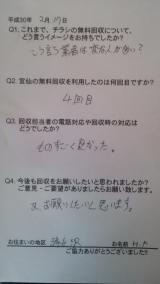 平成30年 2月17日
Q1.これまで、チラシの無料回収について、
どう言うイメージをお持ちでしたか?
こう言う業者は変な人が多い?
Q2.宣仙の無料回収を利用したのは何回目ですか?
4回目
Q3.回収担当者の電話対応や回収時の対応は
どうでしたか?
ものすごく良かった。
Q4.今後も回収をお願いしたいと思われましたか?
ご意見・ご要望がありましたらお願い致します。
又お願いしたいと思います。
お住まいの地区
お名前 H.K
ご協力ありがとうございました!